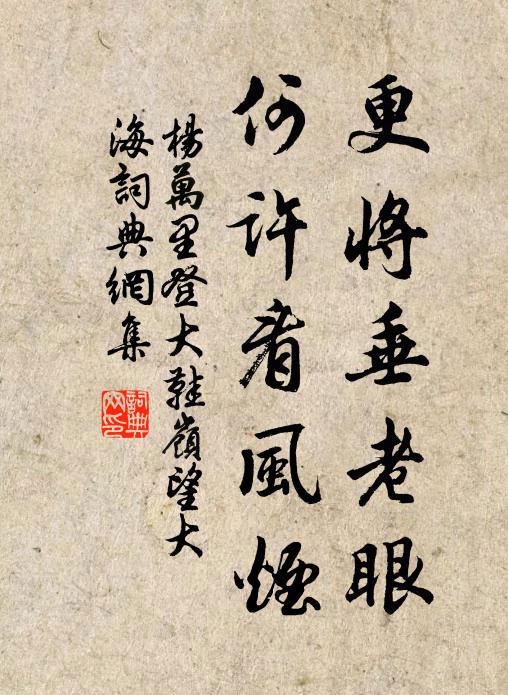 更將垂老眼
何許看風煙
楊萬里登大鞋嶺望大
海詞典網集
詞典
网印